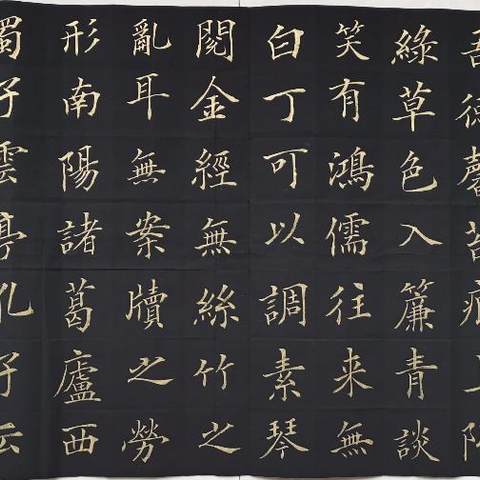 吾德馨苔痕上階
綠草色入簾青談
笑有鴻儒往來無
白丁可以調素琴
閱金經無絲竹之
亂耳無案牘之勞
形南陽諸葛廬西
蜀子雲亭孔子云